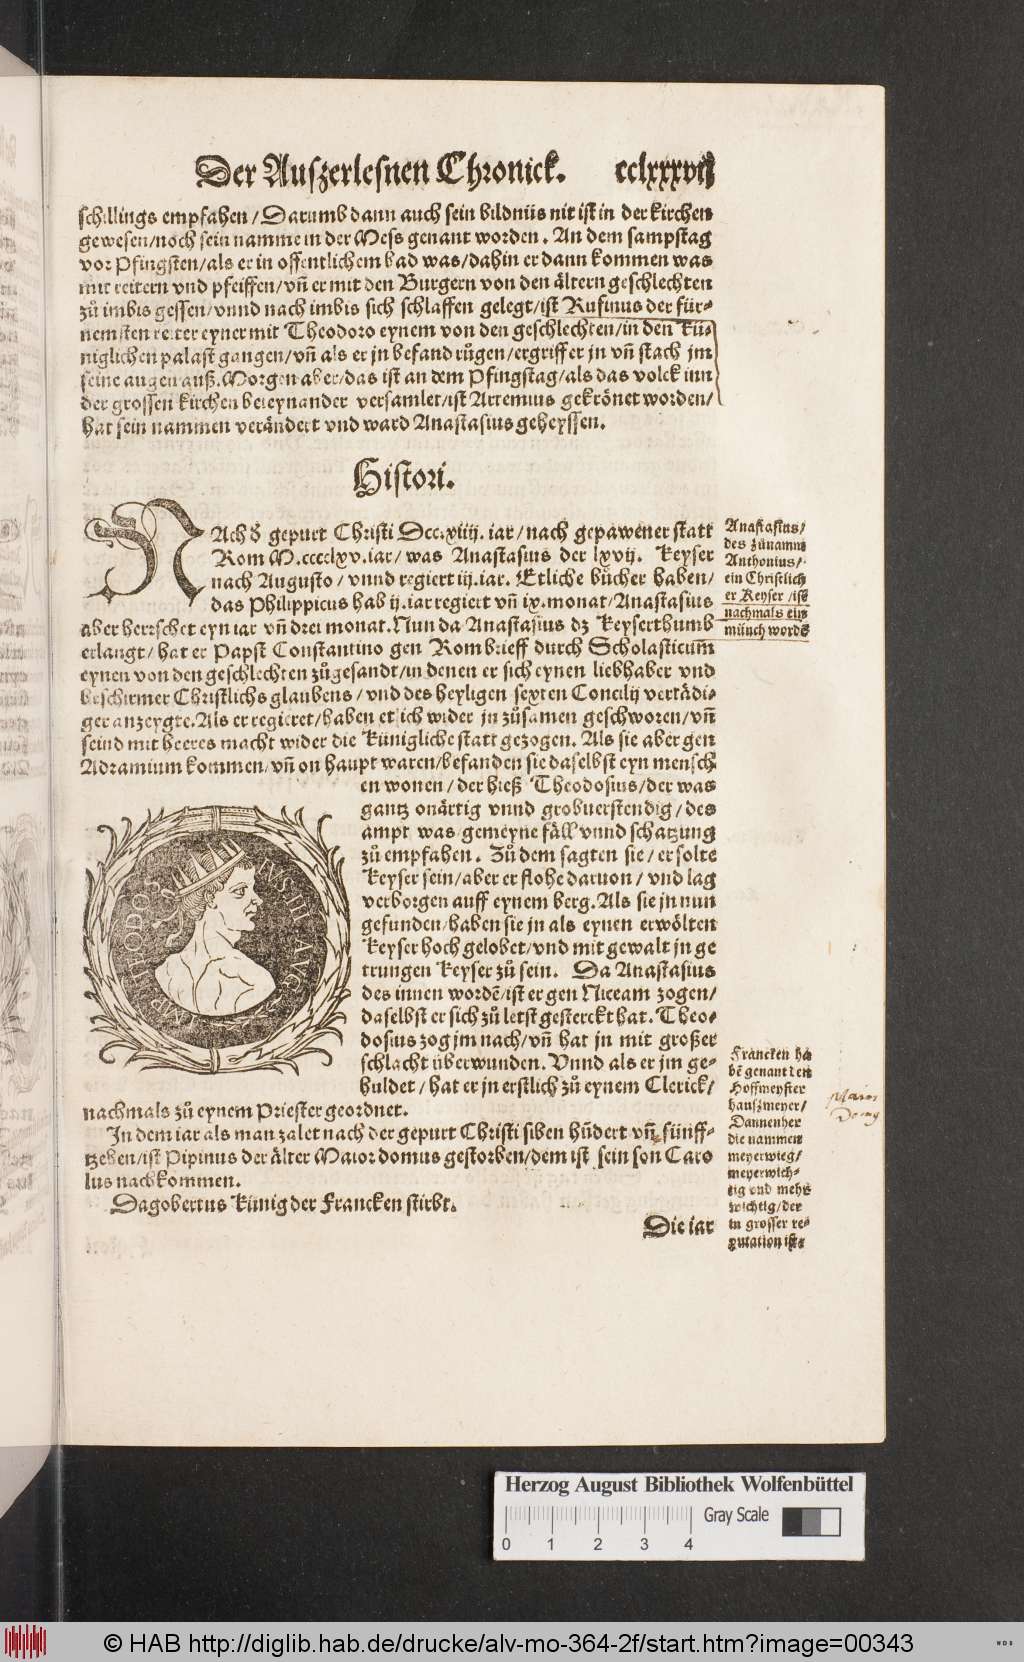 Der Auszerlesnen Chronick. cclxxxvij
schillings empfahen / Darumb dann auch sein bildnüs nit ist in der kirchen
gewesen/noch sein namme in der Mess genant worden. An dem sampstag
vor Pfingsten/als er in offentlichem bad was/dahin er dann kommen was
mit reitern vnd pfeiffen/vñ er mit den Burgern von den ältern geschlechten
zů imbis gessen/vnnd nach imbis sich schlaffen gelegt/ist Rufinus der für-
nemsten reiter eyner mit Theodoro eynem von den geschlechten/in den Kü-
niglichen palast gangen/vñ als er jn befand růgen/ergriff er jn vñ stach jm
seine augen auß. Morgen aber/das ist an dem Pfingstag/als das volck inn
der grossen kirchen beieynander versamlet/ist Artemius gekrönet worden/
hat sein nammen verändert vnd ward Anastasius geheyssen.
Histori.
NAch d gepurt Christi Dccxiiij. iar/nach gepawener statt
Rom M.cccclxv.iar/was Anastasius der lxvij. Keyser
nach Augusto/vnnd regiert iij.iar. Etliche bücher haben/
das Philippicus hab ij.iar regiert vñ ix.monat/Anastasius
aber herrschet eyn iar vñ drei monat. Nun da Anastasius dz Keyserthumb
erlangt/hat er Papst Constantino gen Rom brieff durch Scholasticum̃
eynen von den geschlechten zůgesandt/in denen er sich eynen liebhaber vnd
beschirmer Christlichs glaubens/vnd des heyligen sexten Concilij vertädi-
ger anzeygte. Als er regieret/haben etlich wider jn zůsamen geschworen/vñ
seind mit heeres macht wider die Künigliche statt gezogen. Als sie aber gen
Adramium kommen/vñ on haupt waren/befanden sie daselbst eyn mensch
en wonen/der hieß Theodosius/der was
gantz onärtig vnnd grobuerstendig/des
ampt was gemeyne fäll vnnd schatzung
zů empfahen. Zů dem sagten sie/er solte
Keyser sein/aber er flohe daruon/vnd lag
verborgen auff eynem berg. Als sie jn nun
gefunden/haben sie jn als eynen erwölten
Keyser hoch gelobet/vnd mit gewalt jn ge
trungen Keyser zů sein. Da Anastasius
des innen wordẽ/ist er gen Niceam zogen/
daselbst er sich zů letst gesterckt hat. Theo-
dosius zog jm nach/vñ hat jn mit großer
schlacht überwunden. Vnnd als er jm ge-
huldet/hat er jn erstlich zů eynem Clerick/
nachmals zů eynem Priester geordnet.
In dem iar als man zalet nach der gepurt Christi siben hũdert vñ fünff-
tzehen/ist Pipinus der älter Maior domus gestorben/dem ist sein son Caro
lus nachkommen.
Dagobertus Künig der Francken stirbt.
Die iar
IMP. THODOS
IVS III. AVG
Anastasius/
des zůnamm
Anthonius/
ein Christlich
er Keyser/ist
nachmals ein
münch wordẽ
Francken ha
bẽ genant den
Hoffmeyster
hauszmeyer/
Dannenher
die nammen
meyerwieg/
meyerwich-
tig vnd mehr
wichtig/der
in grosser re-
putation ist.
Maior
Herzog August Bibliothek Wolfenbüttel
Gray Scale
0 1 2 3 4
© HAB http://diglib.hab.de/drucke/alv-mo-364-2f/start.htm?image=00343